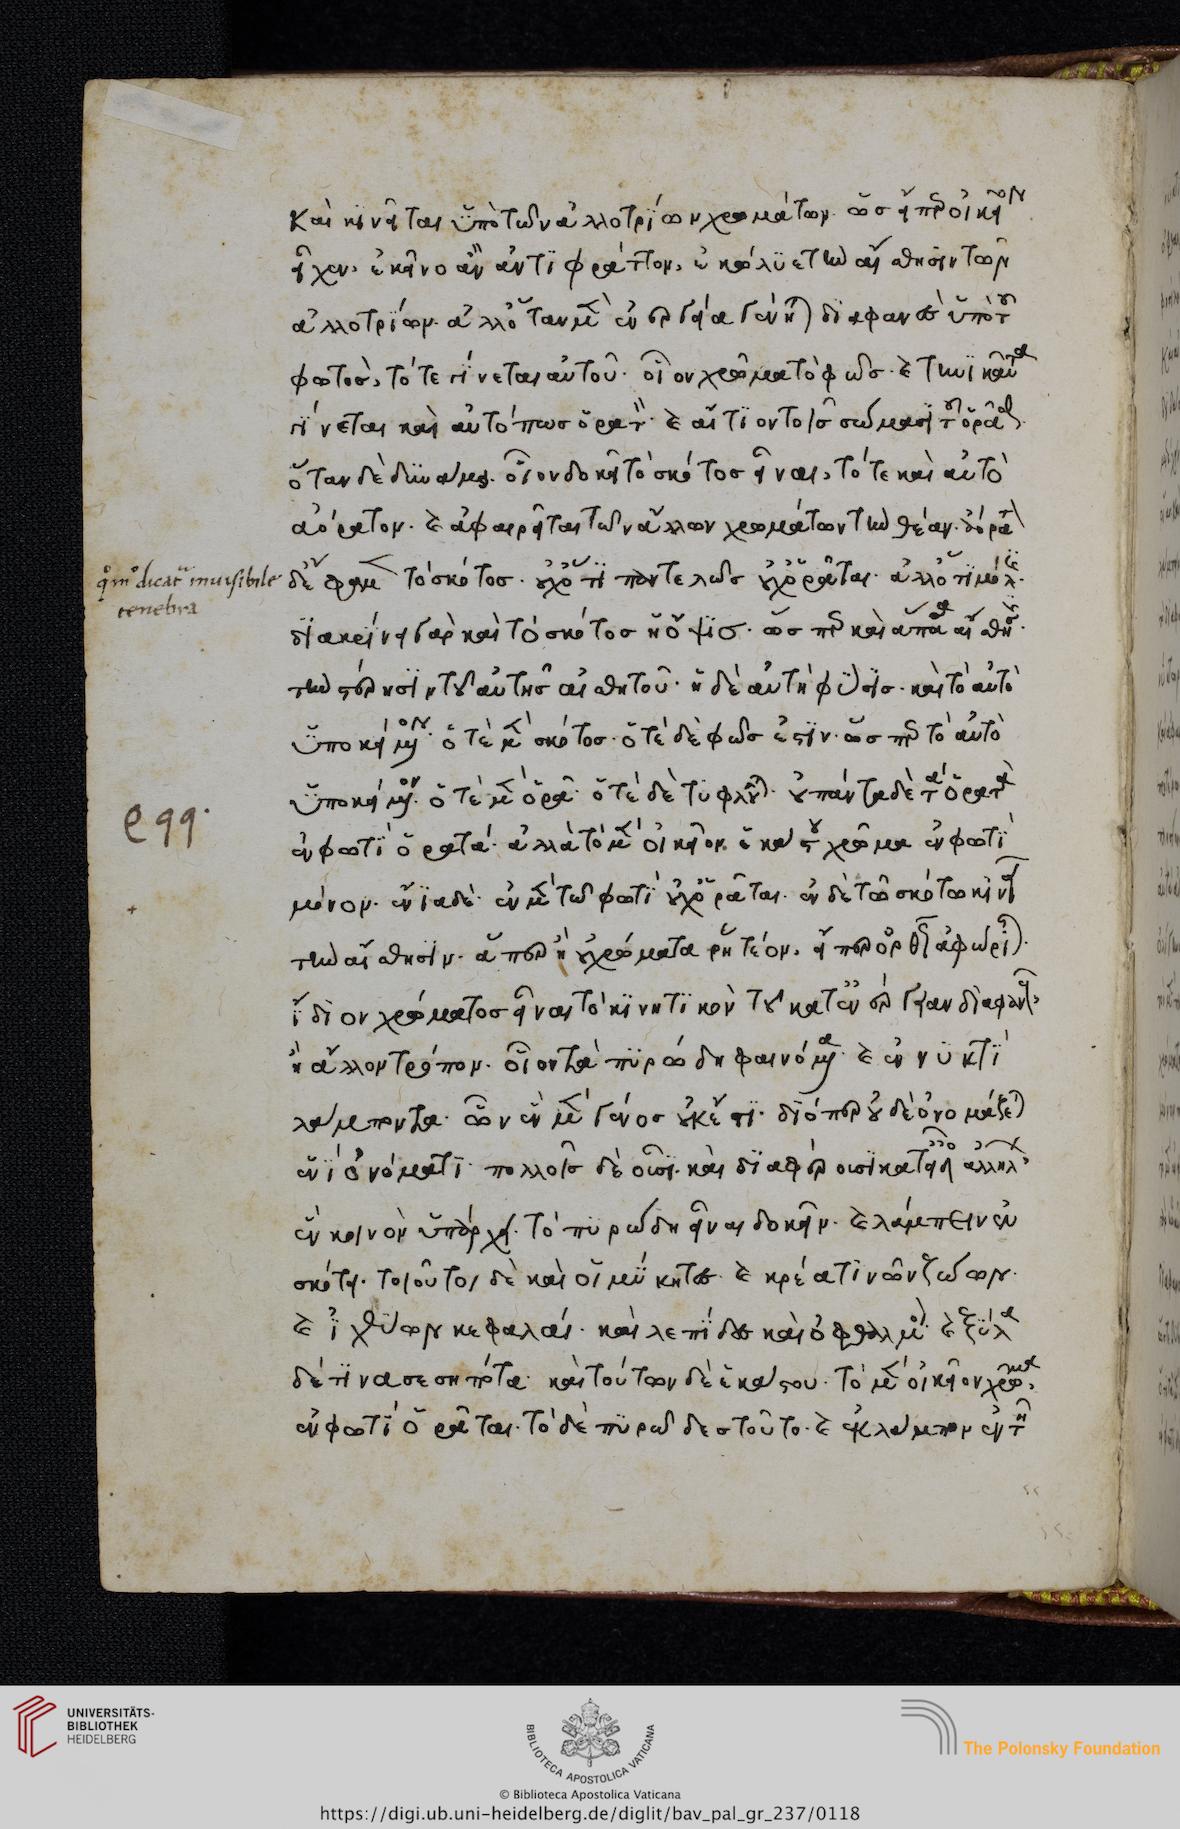 καὶ κινεῖται ὑπὸ τῶν ἀλλοτρίων χρωμάτων. ὡς εἴπερ οἰκεῖον
εἶχεν, ἐκεῖνο ἂν ἀντιφράττον, ἐκώλυε τὴν αἴσθησιν τῶν
ἀλλοτρίων. ἀλλ' ὅταν μὲν ἐνεργείᾳ γένηται διαφανὲς ὑπὸ τοῦ
φωτὸς, τότε γίνεται αὐτοῦ οἷον χρῶμα τὸ φῶς. καὶ τηνικαῦτα
γίνεται καὶ αὐτό πως ὁρατὸν καὶ αἴτιον τοῖς σώμασι τοῦ ὁρᾶσθαι.
ὅταν δὲ δυνάμει. οἷον δοκεῖ τὸ σκότος εἶναι, τότε καὶ αὐτὸ
ἀόρατον. καὶ ἀφαιρεῖται τῶν ἄλλων χρωμάτων τὴν θέαν. ἀόρατον
qͦmͦ dicat̃ inuisibile
tenebra
δέ φαμεν τὸ σκότος. οὐχ ὅτι παντελῶς οὐχ ὁρᾶται. ἀλλ' ὅτι μόλις.
διακρίνει γὰρ καὶ τὸ σκότος ἡ ὄψις. ὥσπερ καὶ ἅπασα αἴσθησις
τὴν στέρησιν τοῦ αὐτῆς αἰσθητοῦ. ἡ δὲ αὐτὴ φύσις. καὶ τὸ αὐτὸ
ὑποκείμενον. ὁτὲ μὲν σκότος. ὁτὲ δὲ φῶς ἐστιν. ὥσπερ τὸ αὐτὸ
ὑποκείμενον. ὁτὲ μὲν ὁρᾷ. ὁτὲ δὲ τυφλοῦται. οὐ πάντα δὲ τὰ ὁρατὰ
ϱ99.
ἐν φωτὶ ὁρατά. ἀλλὰ τὸ μὲν οἰκεῖον ἑκάστου χρῶμα ἐν φωτὶ
μόνον. ἔνια δὲ. ἐν μὲν τῷ φωτὶ οὐχ ὁρᾶται. ἐν δὲ τῷ σκότῳ κινεῖ
τὴν αἴσθησιν. ἅπερ ἢ οὐ χρώματα ῥητέον, εἴπερ ὀρθῶς ἀφώρισται.
ἴδιον χρώματος εἶναι τὸ κινητικὸν τοῦ κατ' ἐνέργειαν διαφανοῦς,
ἢ ἄλλον τρόπον. οἷον τὰ πυρώδη φαινόμενα καὶ ἐν νυκτὶ
λάμποντα. ὧν ἓν μὲν γένος οὐκ ἔστι. διόπερ οὐδὲ ὀνομάζεται
ἑνὶ ὀνόματι. πολλοῖς δὲ οὖσι. καὶ διαφέρουσι κατ' εἶδος ἀλλήλων
ἓν κοινὸν ὑπάρχει. τὸ πυρώδη εἶναι δοκεῖν. καὶ λάμπειν ἐν
σκότει. τοιοῦτοι δὲ καὶ οἱ μύκητες. καὶ κρέα τινῶν ζώων.
καὶ ἰχθύων κεφαλαί. καὶ λεπίδες καὶ ὀφθαλμοί καὶ ξύλα
δέ τινα σεσηπότα. καὶ τούτων δὲ ἑκάστου. τὸ μὲν οἰκεῖον χρῶμα,
ἐν φωτὶ ὁρᾶται. τὸ δὲ πυρῶδες τοῦτο. καὶ ἐκλάμπον ἐν τῇ
UNIVERSITÄTS-
BIBLIOTHEK
HEIDELBERG
BIBLIOTECA APOSTOLICA VATICANA
The Polonsky Foundation
© Biblioteca Apostolica Vaticana
https://digi.ub.uni-heidelberg.de/diglit/bav_pal_gr_237/0118